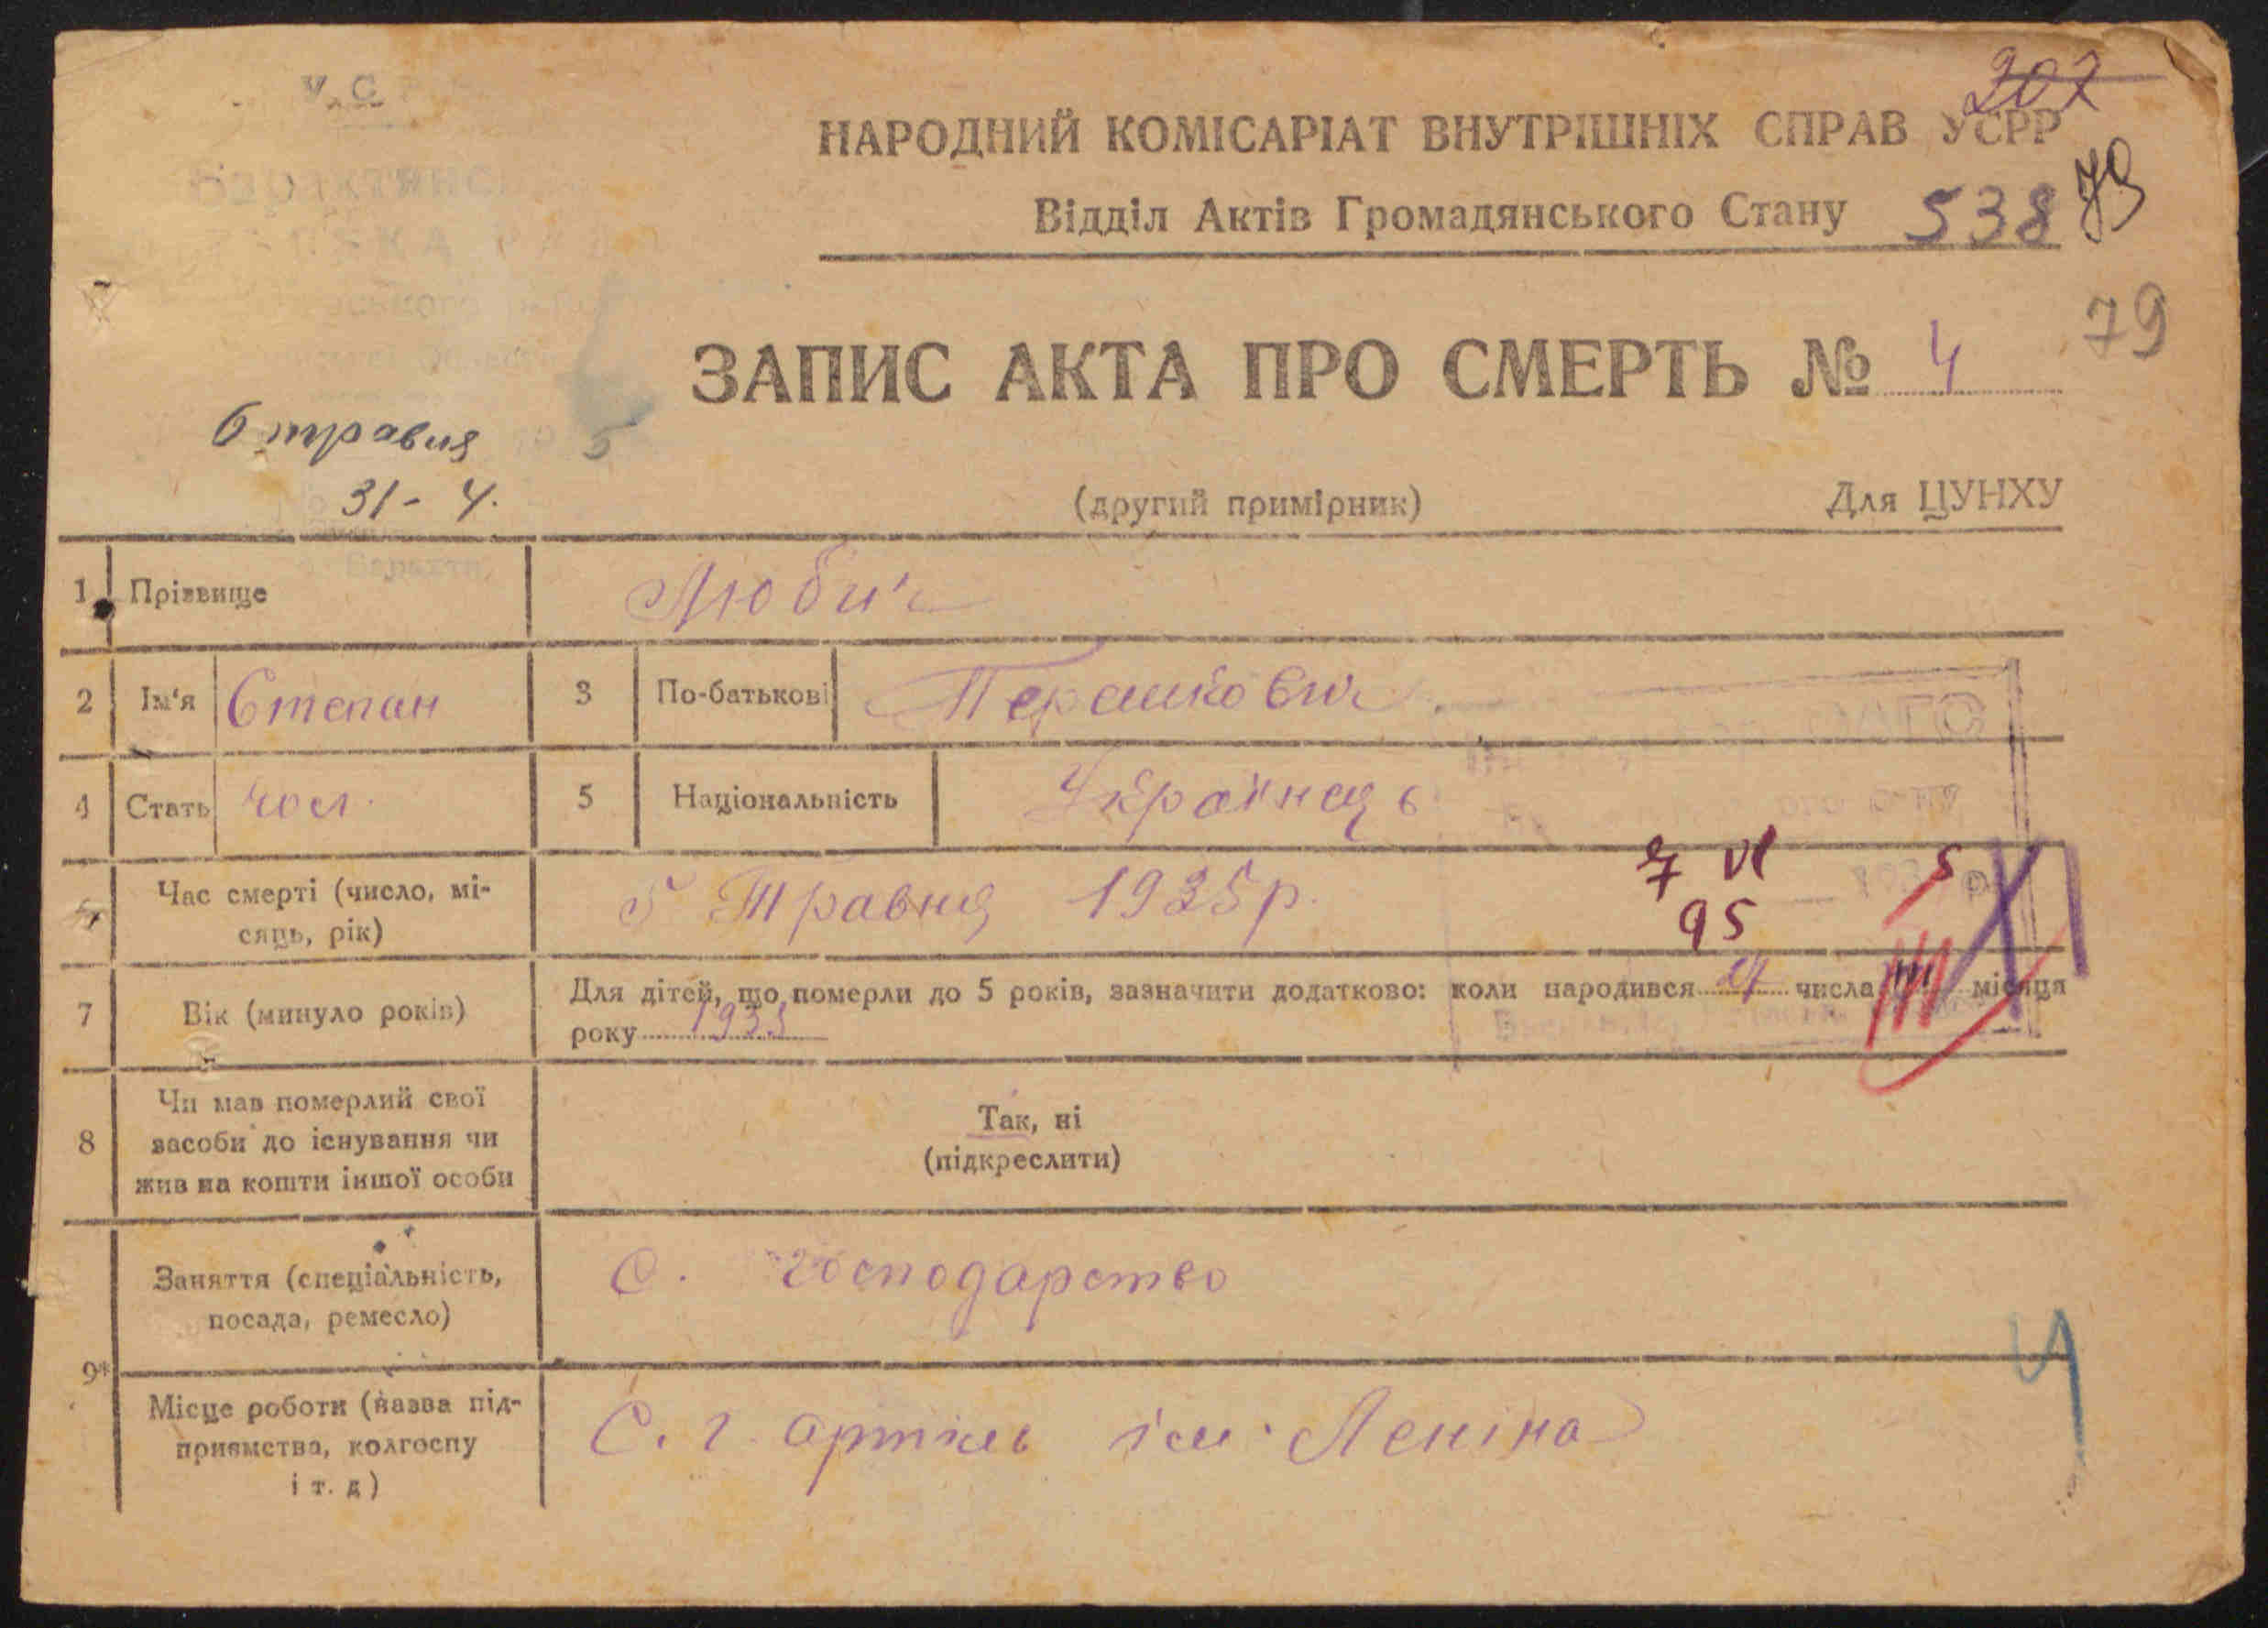 207
НАРОДНИЙ КОМІСАРІАТ ВНУТРІШНІХ СПРАВ УСРР
Відділ Актів Громадянського Стану 538 79
79
ЗАПИС АКТА ПРО СМЕРТЬ № 4
6 травня 5
31 - 4.
(другий примірник) Для ЦУНХУ
1 Прізвище Любич
2 Ім'я Степан 3 По-батькові
4 Стать чол. 5 Національність Українець
Час смерті (число, мі-
сяць, рік) 5 Травня 1935 р.
7 VI 5
95
7 Вік (минуло років) Для дітей, що померли до 5 років, зазначити додатково: коли народився числа місяця
року 1935
8 Чи мав померлий свої
засоби до існування чи
жив на кошти іншої особи
Так, ні
(підкреслити)
9*
Заняття (спеціальність,
посада, ремесло) С. господарство
Місце роботи (назва під-
приємства, колгоспу
і т. д) С. г. артіль ім. Леніна
4